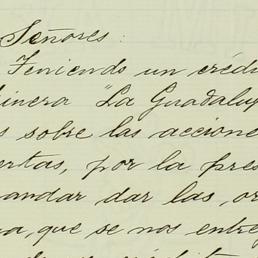 Señores:
Teniendo un crédi
inera "La Guadalup
s sobre las acciones
ertas, por la pres
andar dar las, or
a, que se nos entre